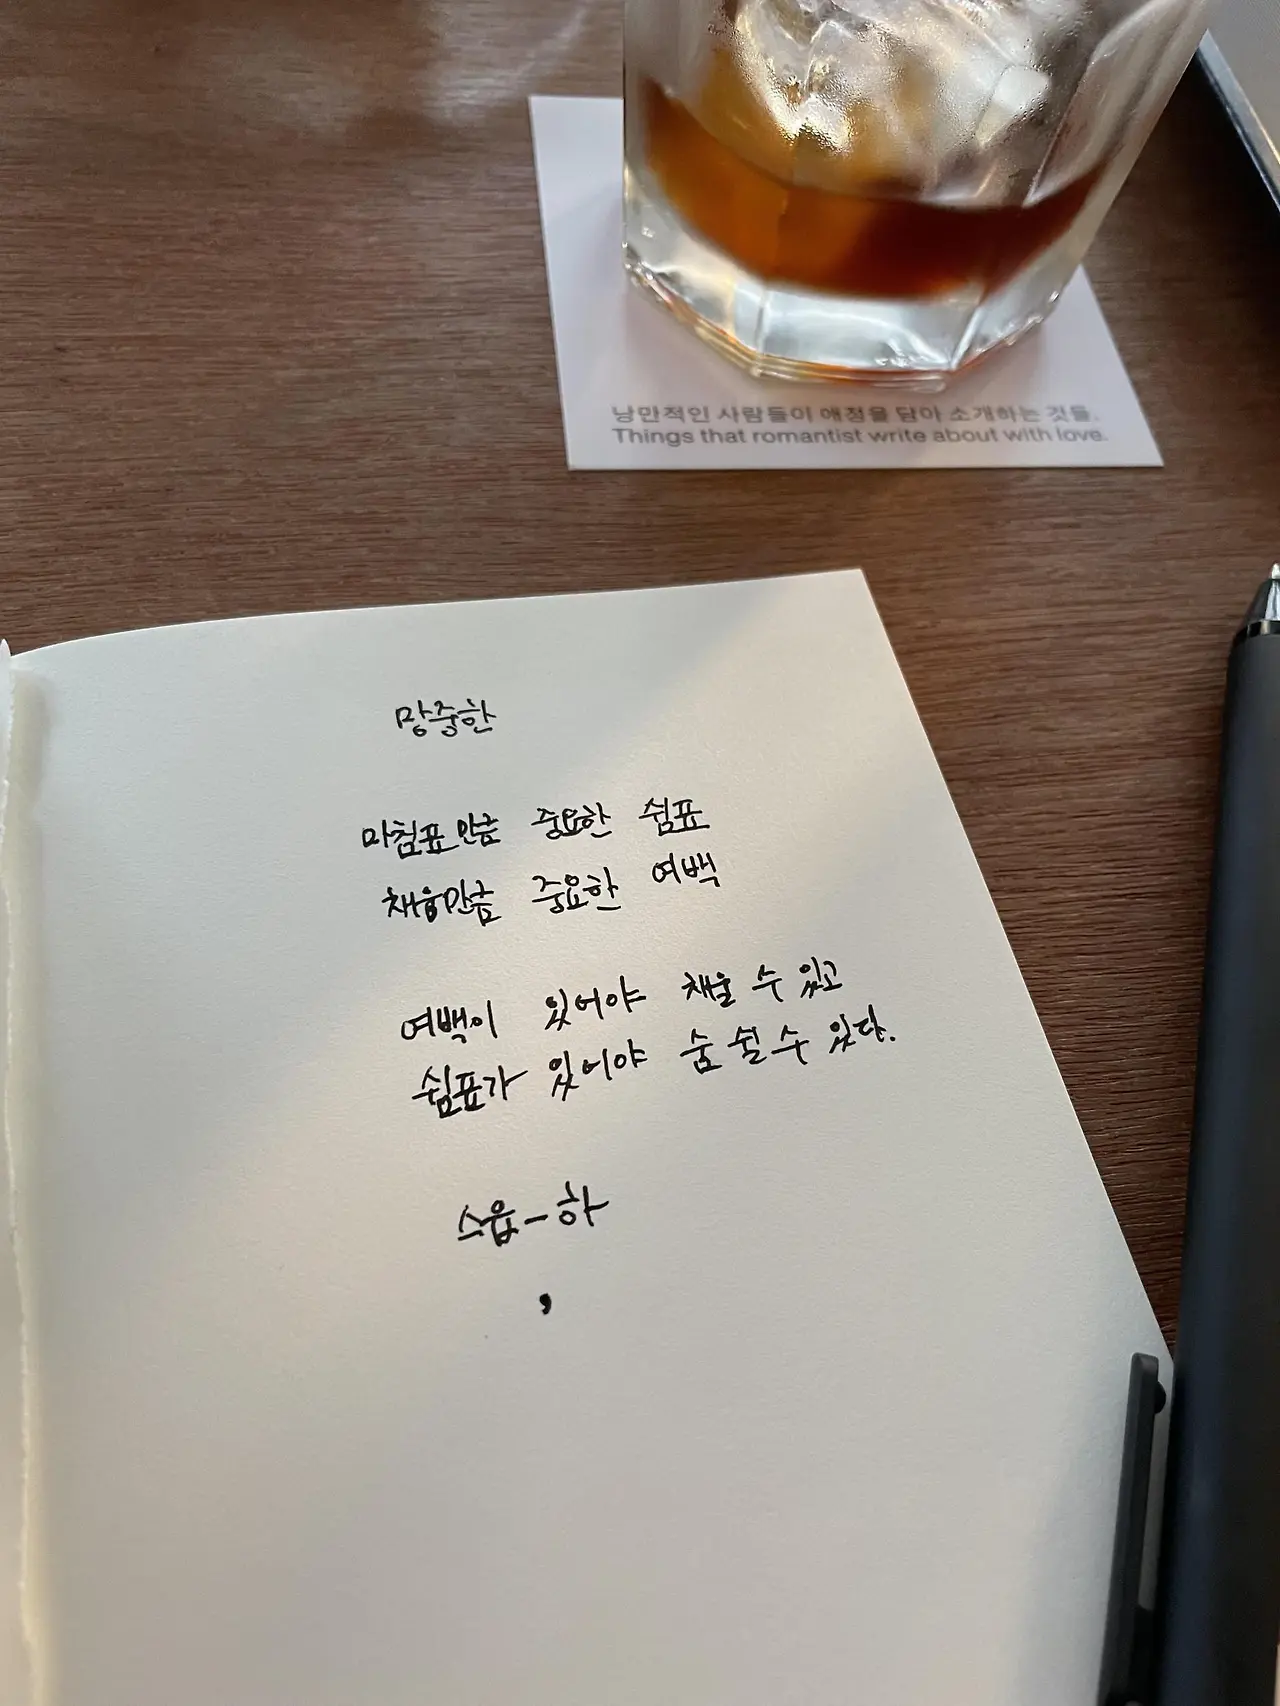 낭만적인 사람들이 애정을 담아 소개하는 것들.
Things that romantist write about with love.
망중한
마침표만큼 중요한 쉼표
채움만큼 중요한 여백
여백이 있어야 채울 수 있고
쉼표가 있어야 숨 쉴 수 있다.
스읍-하
,